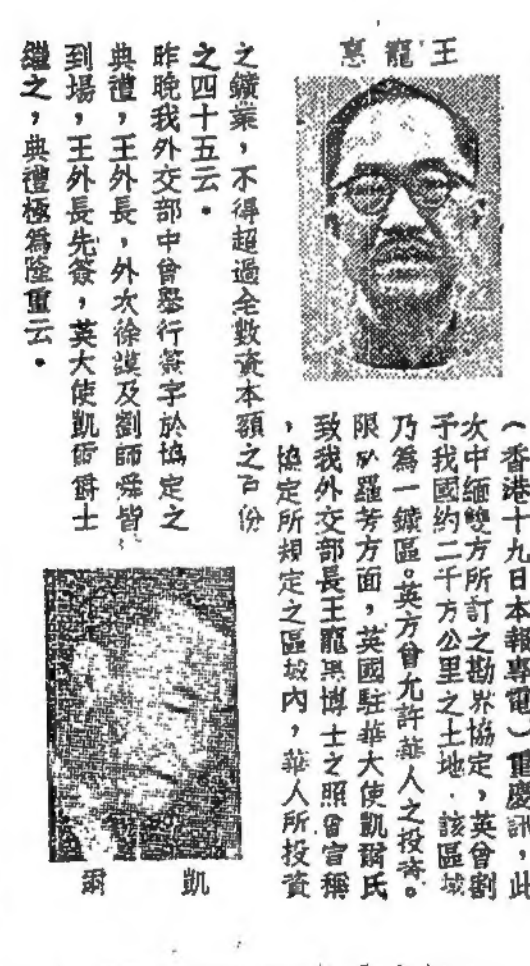 王寵惠
（香港十九日本報專電）重慶訊，此
次中緬雙方所訂之勘界協定，英曾劃
予我國約二千方公里之土地．該區域
乃爲一鑛區。英方曾允許華人之投資。
限於羅芳方面，英國駐華大使凱爾氏
致我外交部長王寵惠博士之照會宣稱
，協定所規定之區域內，華人所投資
之鑛業，不得超過全數資本額之百份
之四十五云。
昨晚我外交部中曾舉行簽字於協定之
典禮，王外長，外次徐謨及劉師舜皆
到塲，王外長先簽，英大使凱爾爵士
繼之，典禮極爲隆重云。
凱爾